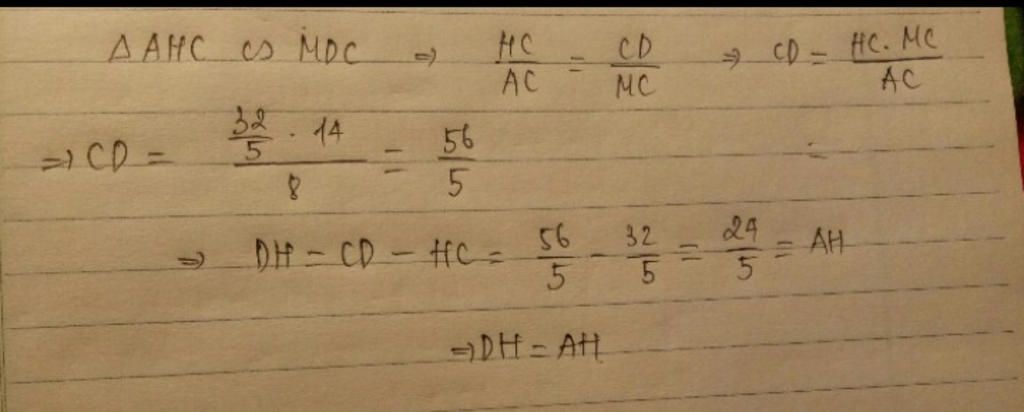 Δ AHC ∽ MDC ⇒ HC/AC = CD/MC ⇒ CD = HC. MC/AC
⇒ CD = (32/5 . 14)/8 = 56/5
⇒ DH = CD - HC = 56/5 - 32/5 = 24/5 = AH
⇒ DH = AH